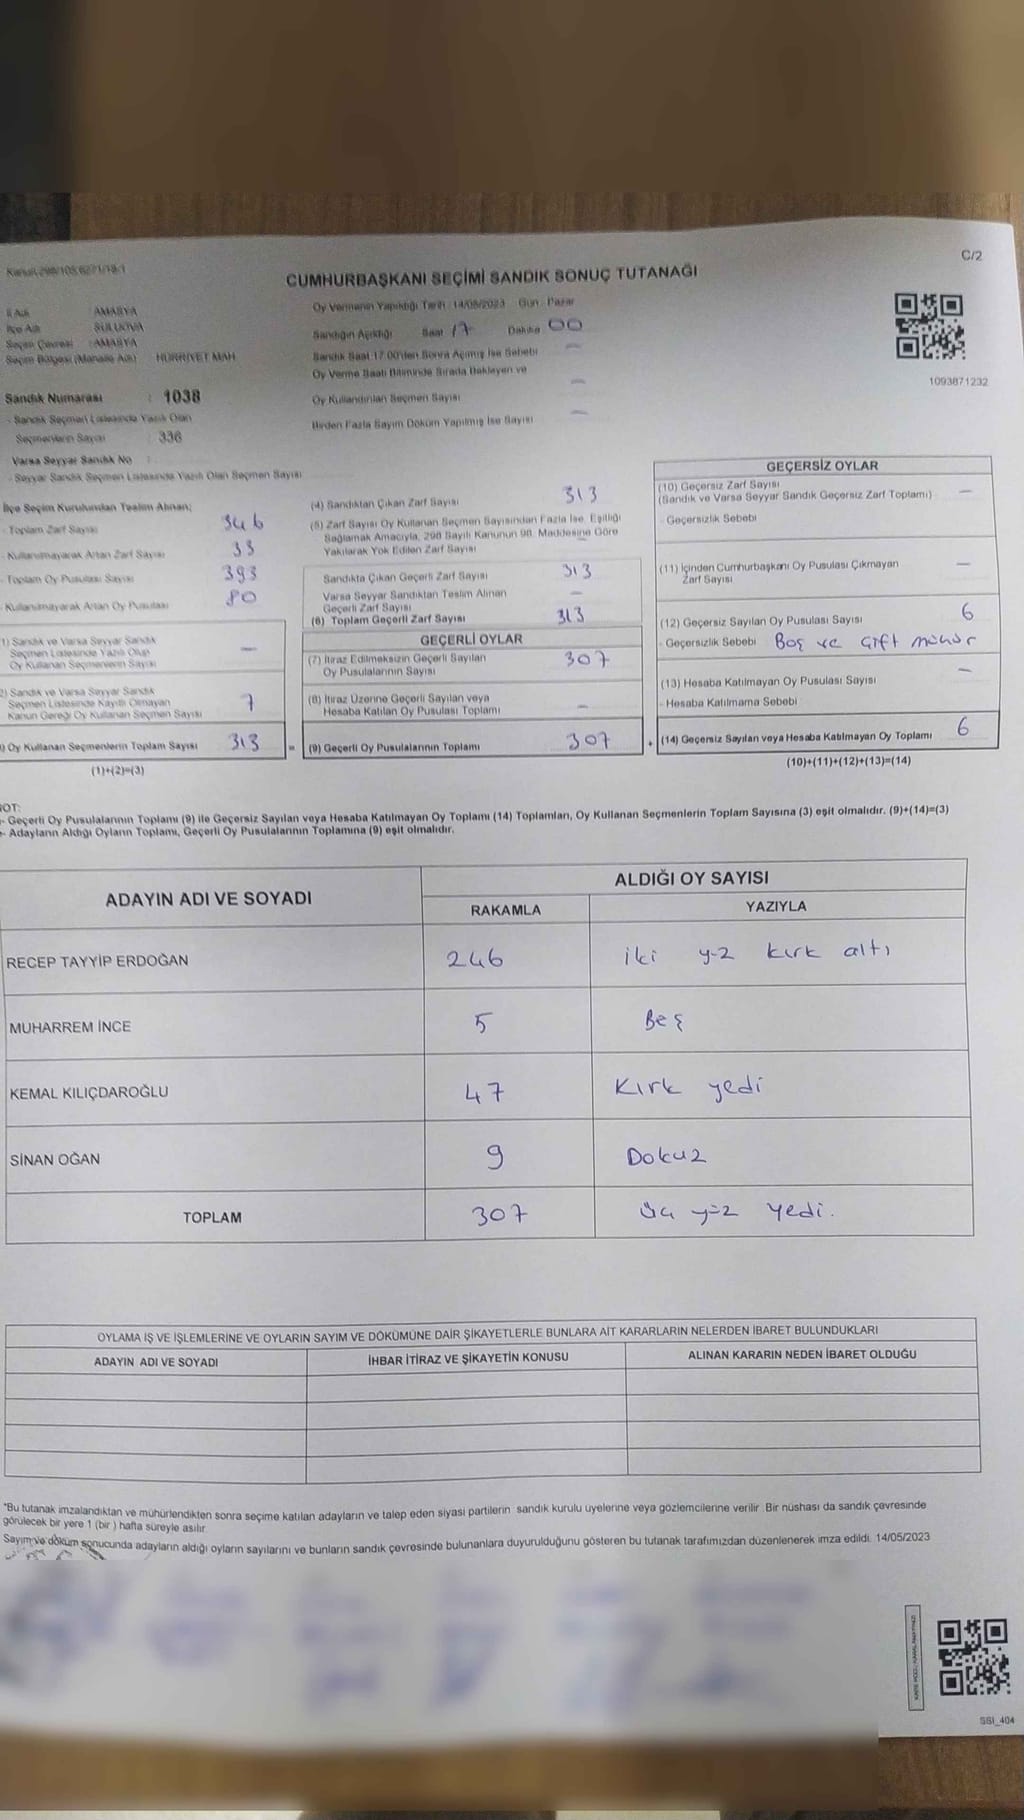 Kanun 298/105,6271/19/1
C/2
CUMHURBAŞKANI SEÇİMİ SANDIK SONUÇ TUTANAĞI
İl Adı : AMASYA
İlçe Adı : SULUOVA
Seçim Çevresi : AMASYA
Seçim Bölgesi (Mahalle Adı) : HÜRRİYET MAH
Oy Vermenin Yapıldığı Tarih : 14/05/2023 Gün : Pazar
Sandığın Açıldığı Saat 17 Dakika 00
Sandık Saat 17.00'den Sonra Açılmış İse Sebebi —
Oy Verme Saati Bitiminde Sırada Bekleyen ve
Oy Kullandırılan Seçmen Sayısı —
Birden Fazla Sayım Döküm Yapılmış İse Sayısı —
1093871232
Sandık Numarası : 1038
- Sandık Seçmen Listesinde Yazılı Olan
Seçmenlerin Sayısı : 336
Varsa Seyyar Sandık No :
- Seyyar Sandık Seçmen Listesinde Yazılı Olan Seçmen Sayısı
İlçe Seçim Kurulundan Teslim Alınan;
- Toplam Zarf Sayısı 346
- Kullanılmayarak Artan Zarf Sayısı 33
- Toplam Oy Pusulası Sayısı 393
- Kullanılmayarak Artan Oy Pusulası 80
1) Sandık ve Varsa Seyyar Sandık
Seçmen Listesinde Yazılı Olup
Oy Kullanan Seçmenlerin Sayısı —
2) Sandık ve Varsa Seyyar Sandık
Seçmen Listesinde Kayıtlı Olmayan
Kanun Gereği Oy Kullanan Seçmen Sayısı 7
) Oy Kullanan Seçmenlerin Toplam Sayısı 313
(1)+(2)=(3)
(4) Sandıktan Çıkan Zarf Sayısı 313
(5) Zarf Sayısı Oy Kullanan Seçmen Sayısından Fazla İse, Eşitliği
Sağlamak Amacıyla, 298 Sayılı Kanunun 98. Maddesine Göre
Yakılarak Yok Edilen Zarf Sayısı —
Sandıkta Çıkan Geçerli Zarf Sayısı 313
Varsa Seyyar Sandıktan Teslim Alınan
Geçerli Zarf Sayısı —
(6) Toplam Geçerli Zarf Sayısı 313
GEÇERLİ OYLAR
(7) İtiraz Edilmeksizin Geçerli Sayılan
Oy Pusulalarının Sayısı 307
(8) İtiraz Üzerine Geçerli Sayılan veya
Hesaba Katılan Oy Pusulası Toplamı —
= (9) Geçerli Oy Pusulalarının Toplamı 307 +
GEÇERSİZ OYLAR
(10) Geçersiz Zarf Sayısı
(Sandık ve Varsa Seyyar Sandık Geçersiz Zarf Toplamı) —
- Geçersizlik Sebebi
(11) İçinden Cumhurbaşkanı Oy Pusulası Çıkmayan
Zarf Sayısı —
(12) Geçersiz Sayılan Oy Pusulası Sayısı 6
- Geçersizlik Sebebi Boş ve çift mühür
(13) Hesaba Katılmayan Oy Pusulası Sayısı —
- Hesaba Katılmama Sebebi
(14) Geçersiz Sayılan veya Hesaba Katılmayan Oy Toplamı 6
(10)+(11)+(12)+(13)=(14)
NOT:
- Geçerli Oy Pusulalarının Toplamı (9) ile Geçersiz Sayılan veya Hesaba Katılmayan Oy Toplamı (14) Toplamları, Oy Kullanan Seçmenlerin Toplam Sayısına (3) eşit olmalıdır. (9)+(14)=(3)
- Adayların Aldığı Oyların Toplamı, Geçerli Oy Pusulalarının Toplamına (9) eşit olmalıdır.
ADAYIN ADI VE SOYADI
ALDIĞI OY SAYISI
RAKAMLA YAZIYLA
RECEP TAYYİP ERDOĞAN 246 iki yüz kırk altı
MUHARREM İNCE 5 Beş
KEMAL KILIÇDAROĞLU 47 Kırk yedi
SİNAN OĞAN 9 Dokuz
TOPLAM 307 üç yüz yedi.
OYLAMA İŞ VE İŞLEMLERİNE VE OYLARIN SAYIM VE DÖKÜMÜNE DAİR ŞİKAYETLERLE BUNLARA AİT KARARLARIN NELERDEN İBARET BULUNDUKLARI
ADAYIN ADI VE SOYADI İHBAR İTİRAZ VE ŞİKAYETİN KONUSU ALINAN KARARIN NEDEN İBARET OLDUĞU
*Bu tutanak imzalandıktan ve mühürlendikten sonra seçime katılan adayların ve talep eden siyasi partilerin sandık kurulu üyelerine veya gözlemcilerine verilir. Bir nüshası da sandık çevresinde
görülecek bir yere 1 (bir) hafta süreyle asılır.
Sayım ve döküm sonucunda adayların aldığı oyların sayılarını ve bunların sandık çevresinde bulunanlara duyurulduğunu gösteren bu tutanak tarafımızdan düzenlenerek imza edildi. 14/05/2023
SSI_404